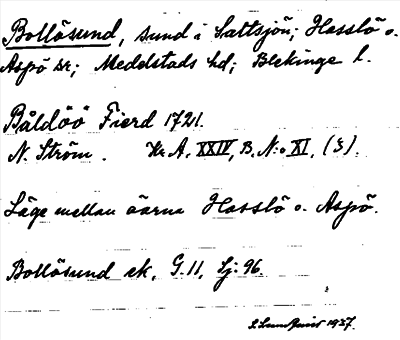 Bollösund, sund i Saltsjön; Hasslö o.
Aspö sr; Medelstads hd; Blekinge l.
Båldöö Fierd 1721.
N. Ström. Kr A. XXIV, B. N:o XI, (3).
Läge mellan öarna Hasslö o. Aspö.
Bollösund ek. G. 11, Sj: 96.
1937.